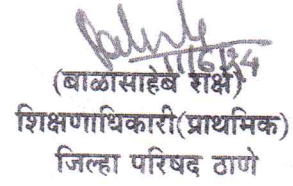 11/6/24
(बाळासाहेब राक्षे)
शिक्षणाधिकारी(प्राथमिक)
जिल्हा परिषद ठाणे